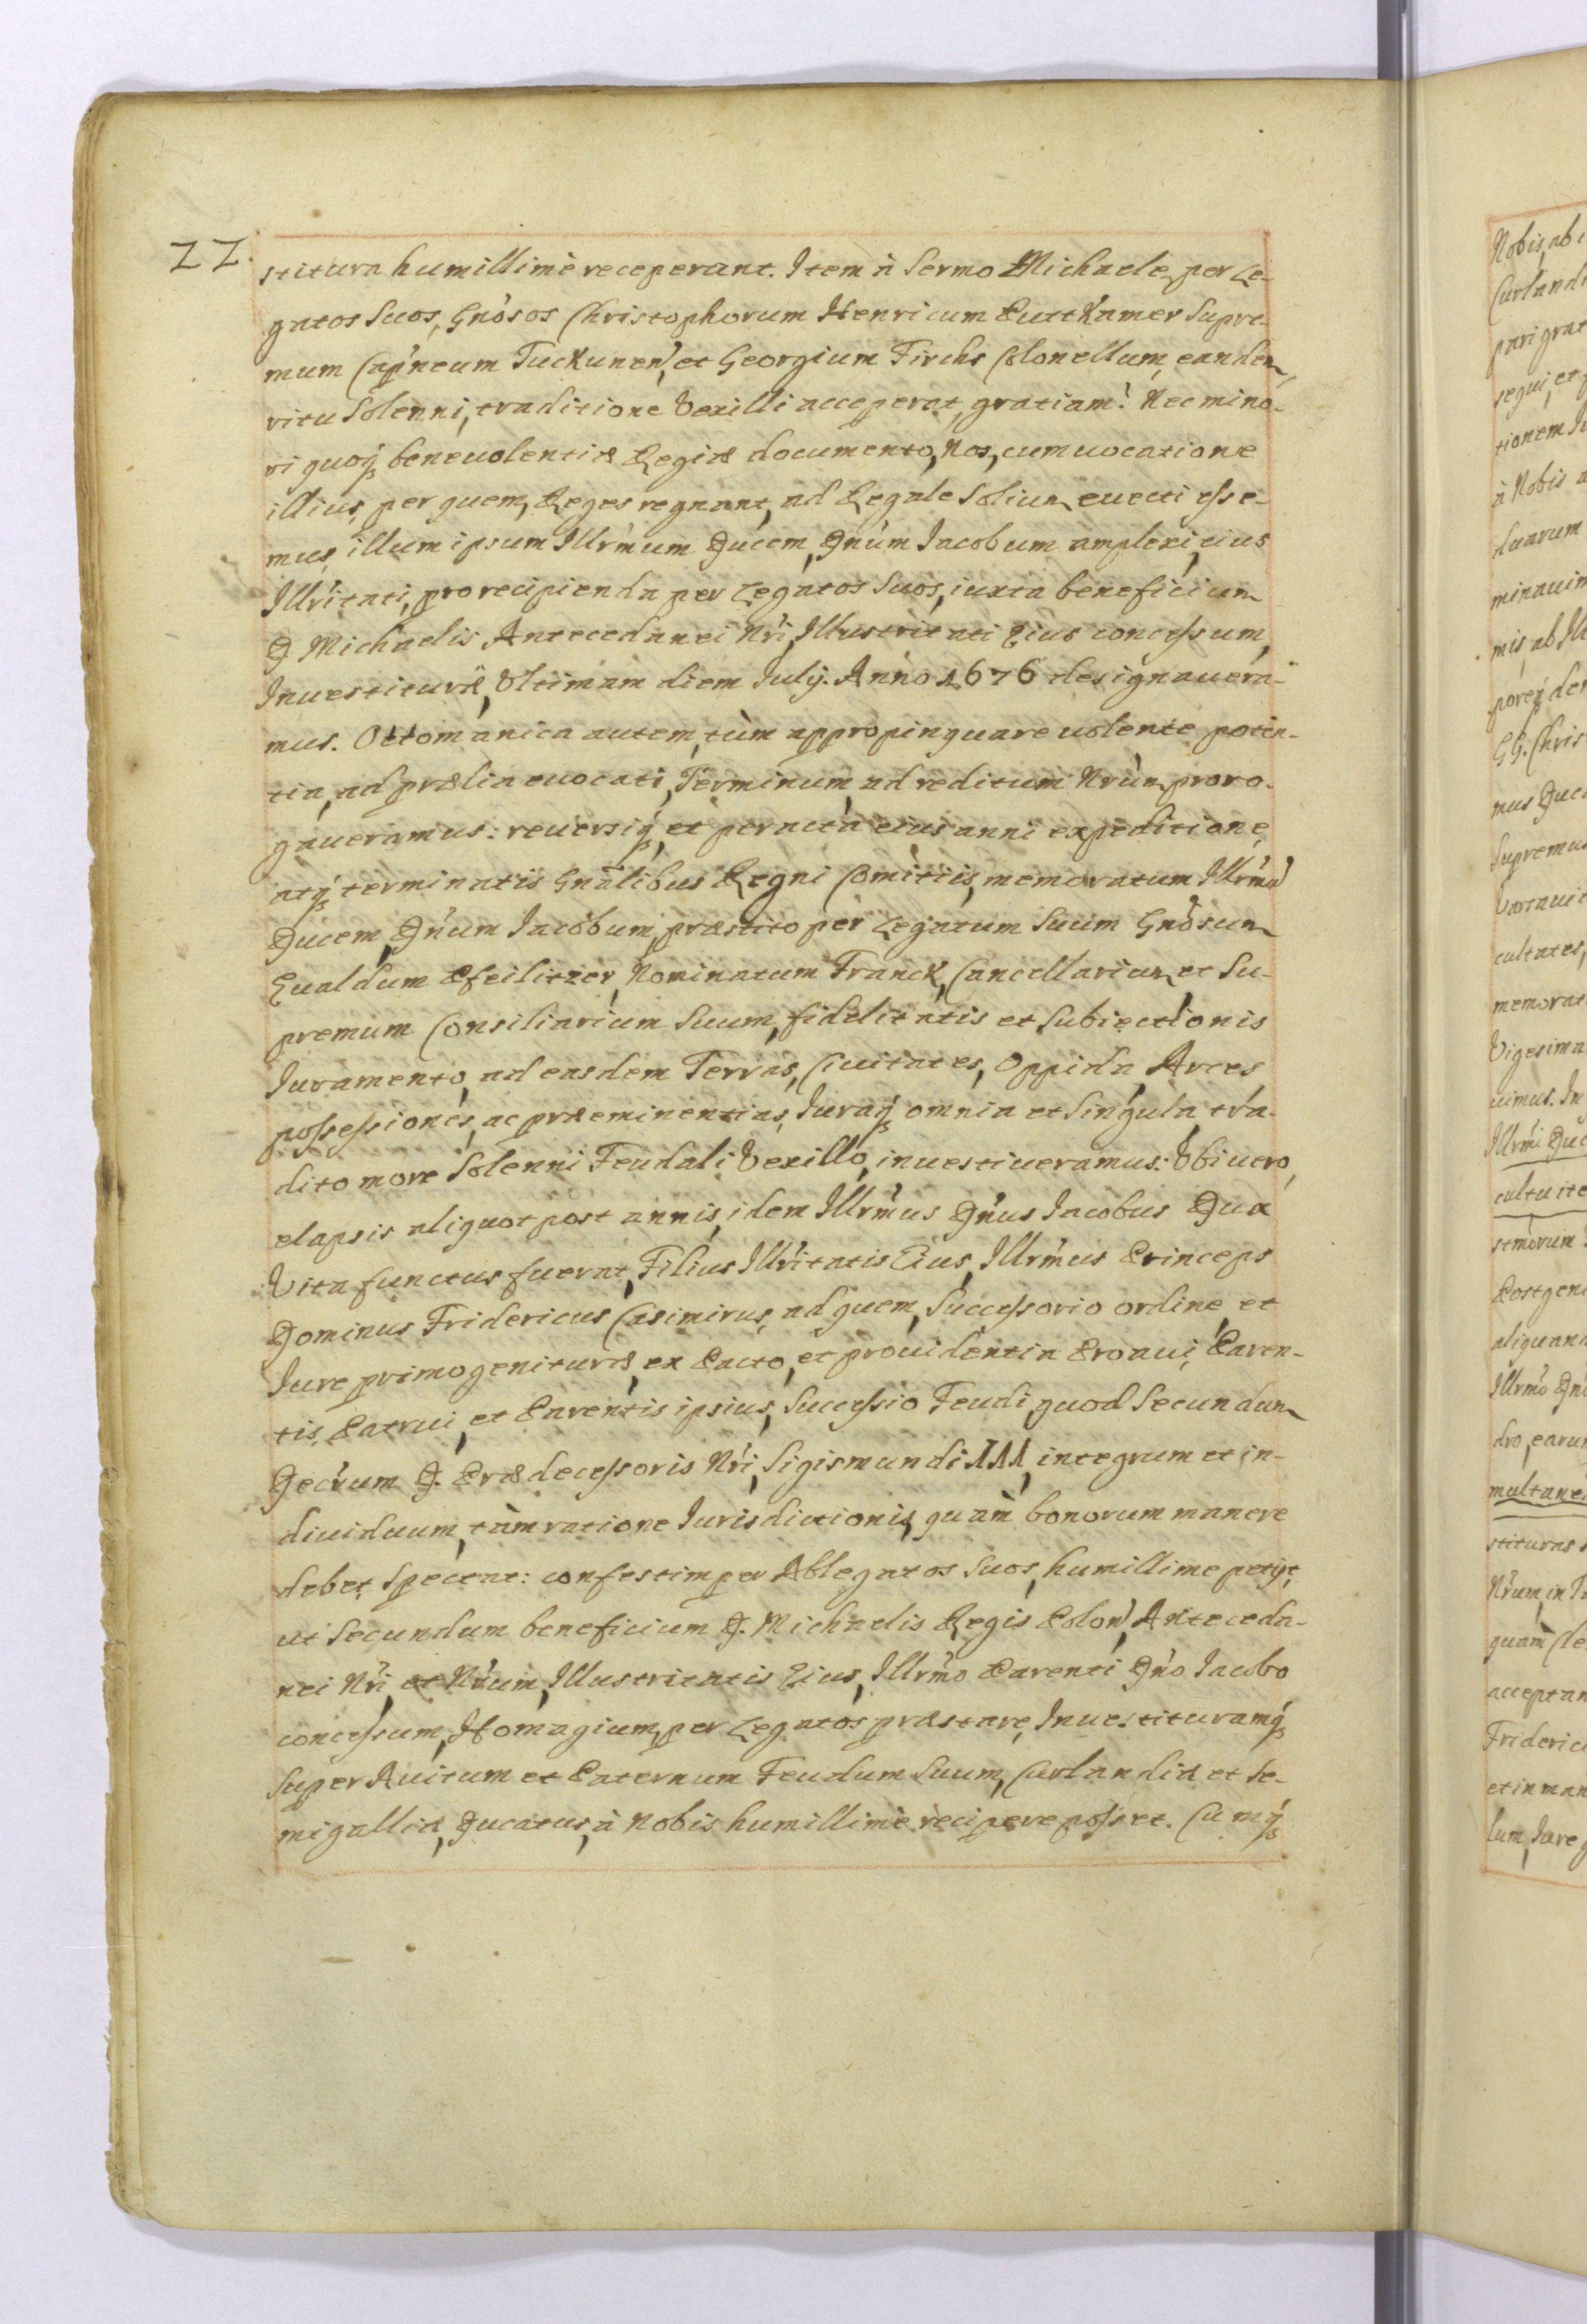 22.
stitura humillimè receperant. Item à Sermo Michaele, per Le-
gatos Suos, Gnosos Christophorum Henricum Puttkamer Supre-
mum Capneum Tuckunen, et Georgium Firchs Colonellum, eandem,
ritu Solenni, traditione Vexilli acceperat, gratiam. Nec mino-
ri quoq benevolentiæ Regiæ documento, Nos, cum uocatione
illius, per quem, Reges regnant, ad Regale Solium euecti esse-
mus, illum ipsum Illrmum Ducem, Dnum Iacobum amplexi, eius
Illritati, pro recipienda per Legatos Suos, iuxta beneficium
D Michaelis Antecedanei Nri, Illustritati Eius concessum,
Inuestitura, Vltimam diem Iulÿ. Anno 1676 designauera-
mus. Ottomanica autem, tùm appropinquare uolente poten-
tia, ad prælia euocati, Terminum, ad reditum Nrum, proro-
gaueramus: reuersiq, et peracta eius anni expeditione,
atq terminatis Gnalibus Regni Comitiis, memoratum Illrmu
Ducem, Dnum Iacobum, præstito per Legatum Suum Gnosum
Eualdum Pfeilitzer, Nominatum Franck, Cancellarium et Su-
premum Consiliarium Suum, fidelitatis et Subiectionis
Iuramento, ad easdem Terras, Ciuitates, Oppida, Arces
possessiones, ac præeminentias, Iuraq omnia et Singula, tra-
dito more Solenni Feudali Vexillo, inuestiueramus: Vbi uero,
elapsis aliquot post annis, idem Illrmus Dnus Iacobus Dux
Vita functus fuerat, Filius Illritatis Eius, Illrmus Princeps
Dominus Fridericus Casimirus, ad quem, Successorio ordine, et
Iure primogenituræ, ex Pacto, et prouidentia Proaui, Paren-
tis, Patrui, et Parentis ipsius, Successio Feudi, quod Secundum
Decrum D. Prædecessoris Nri, Sigismundi III, integrum et in-
diuiduum, tàm ratione Iurisdictionis, quàm bonorum manere
debet, Spectat: confestim per Ablegatos Suos, humillime petÿt,
ut Secundum beneficium D. Michaelis Regis Polon, Anteceda-
nei Nri, et Nrum, Illustritatis Eius, Illrmo Parenti Dno Iacobo
concessum, Homagium, per Legatos præstare, Inuestituramq
Super Auitum et Paternum Feudum Suum, Curlandiæ et Se-
migalliæ, Ducatus, à Nobis humillimè recipere posset. Cumq